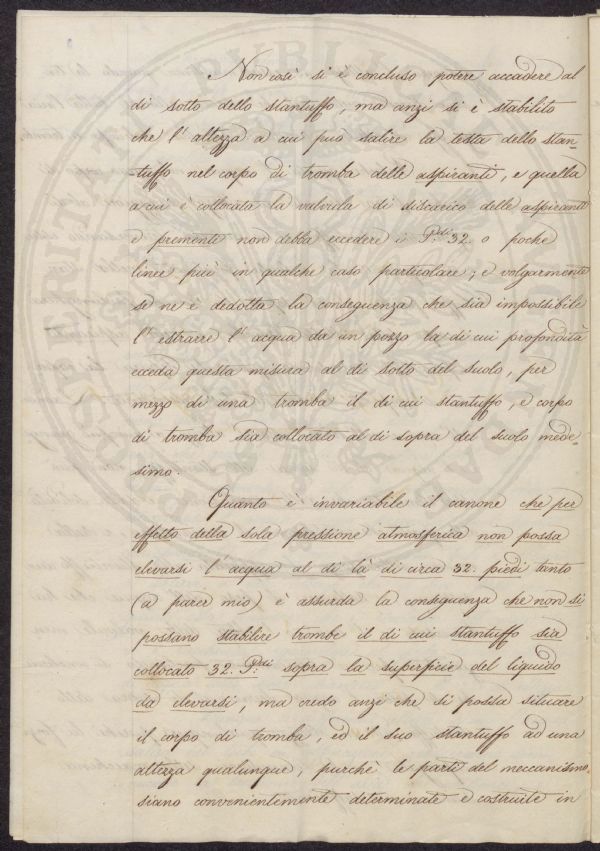 Non così si è concluso potere accadere al
di sotto dello stantuffo, ma anzi si è stabilito
che l'altezza a cui può salire la testa dello stan-
tuffo nel corpo di tromba delle aspiranti, e quella
a cui è collocata la valvula di discarico delle aspiranti
e prementi non debba eccedere i P.di 32. o poche
linee più in qualche caso particolare; e volgarmente
se ne è dedotta la conseguenza che sia impossibile
l'estrarre l'acqua da un pozzo la di cui profondità
ecceda questa misura al di sotto del suolo, per
mezzo di una tromba il di cui stantuffo, e corpo
di tromba sia collocato al di sopra del suolo mede-
simo.
Quanto è invariabile il canone che per
effetto della sola pressione atmosferica non possa
elevarsi l'acqua al di là di circa 32. piedi tanto
(a parer mio) è assurda la conseguenza che non si
possano stabilire trombe il di cui stantuffo sia
collocato 32. P.di sopra la superficie del liquido
da elevarsi, ma credo anzi che si possa situare
il corpo di tromba, ed il suo stantuffo ad una
altezza qualunque, purchè le parti del meccanismo
siano convenientemente determinate e costruite in